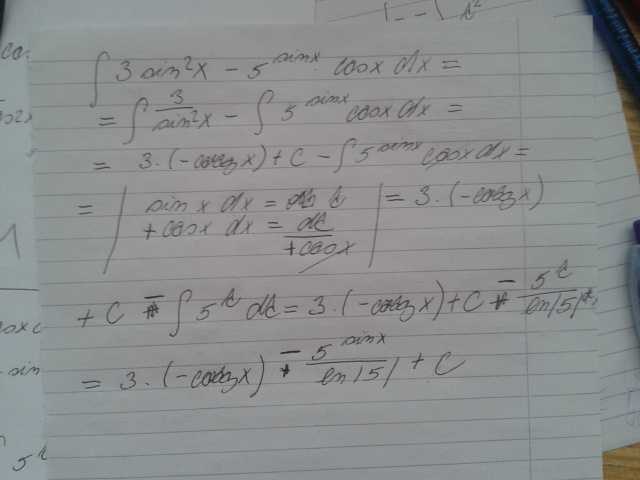 ∫ 3 sin²x − 5^sinx · cosx dx =
= ∫ 3/sin²x − ∫ 5^sinx cosx dx =
= 3·(−cotgx) + C − ∫ 5^sinx cosx dx =
= | sin x dx = t | = 3·(−cotgx)
+cosx dx = dt/+cosx
+ C − ∫ 5^t dt = 3·(−cotgx) + C − 5^t/ln|5|
= 3·(−cotgx) − 5^sinx/ln|5| + C